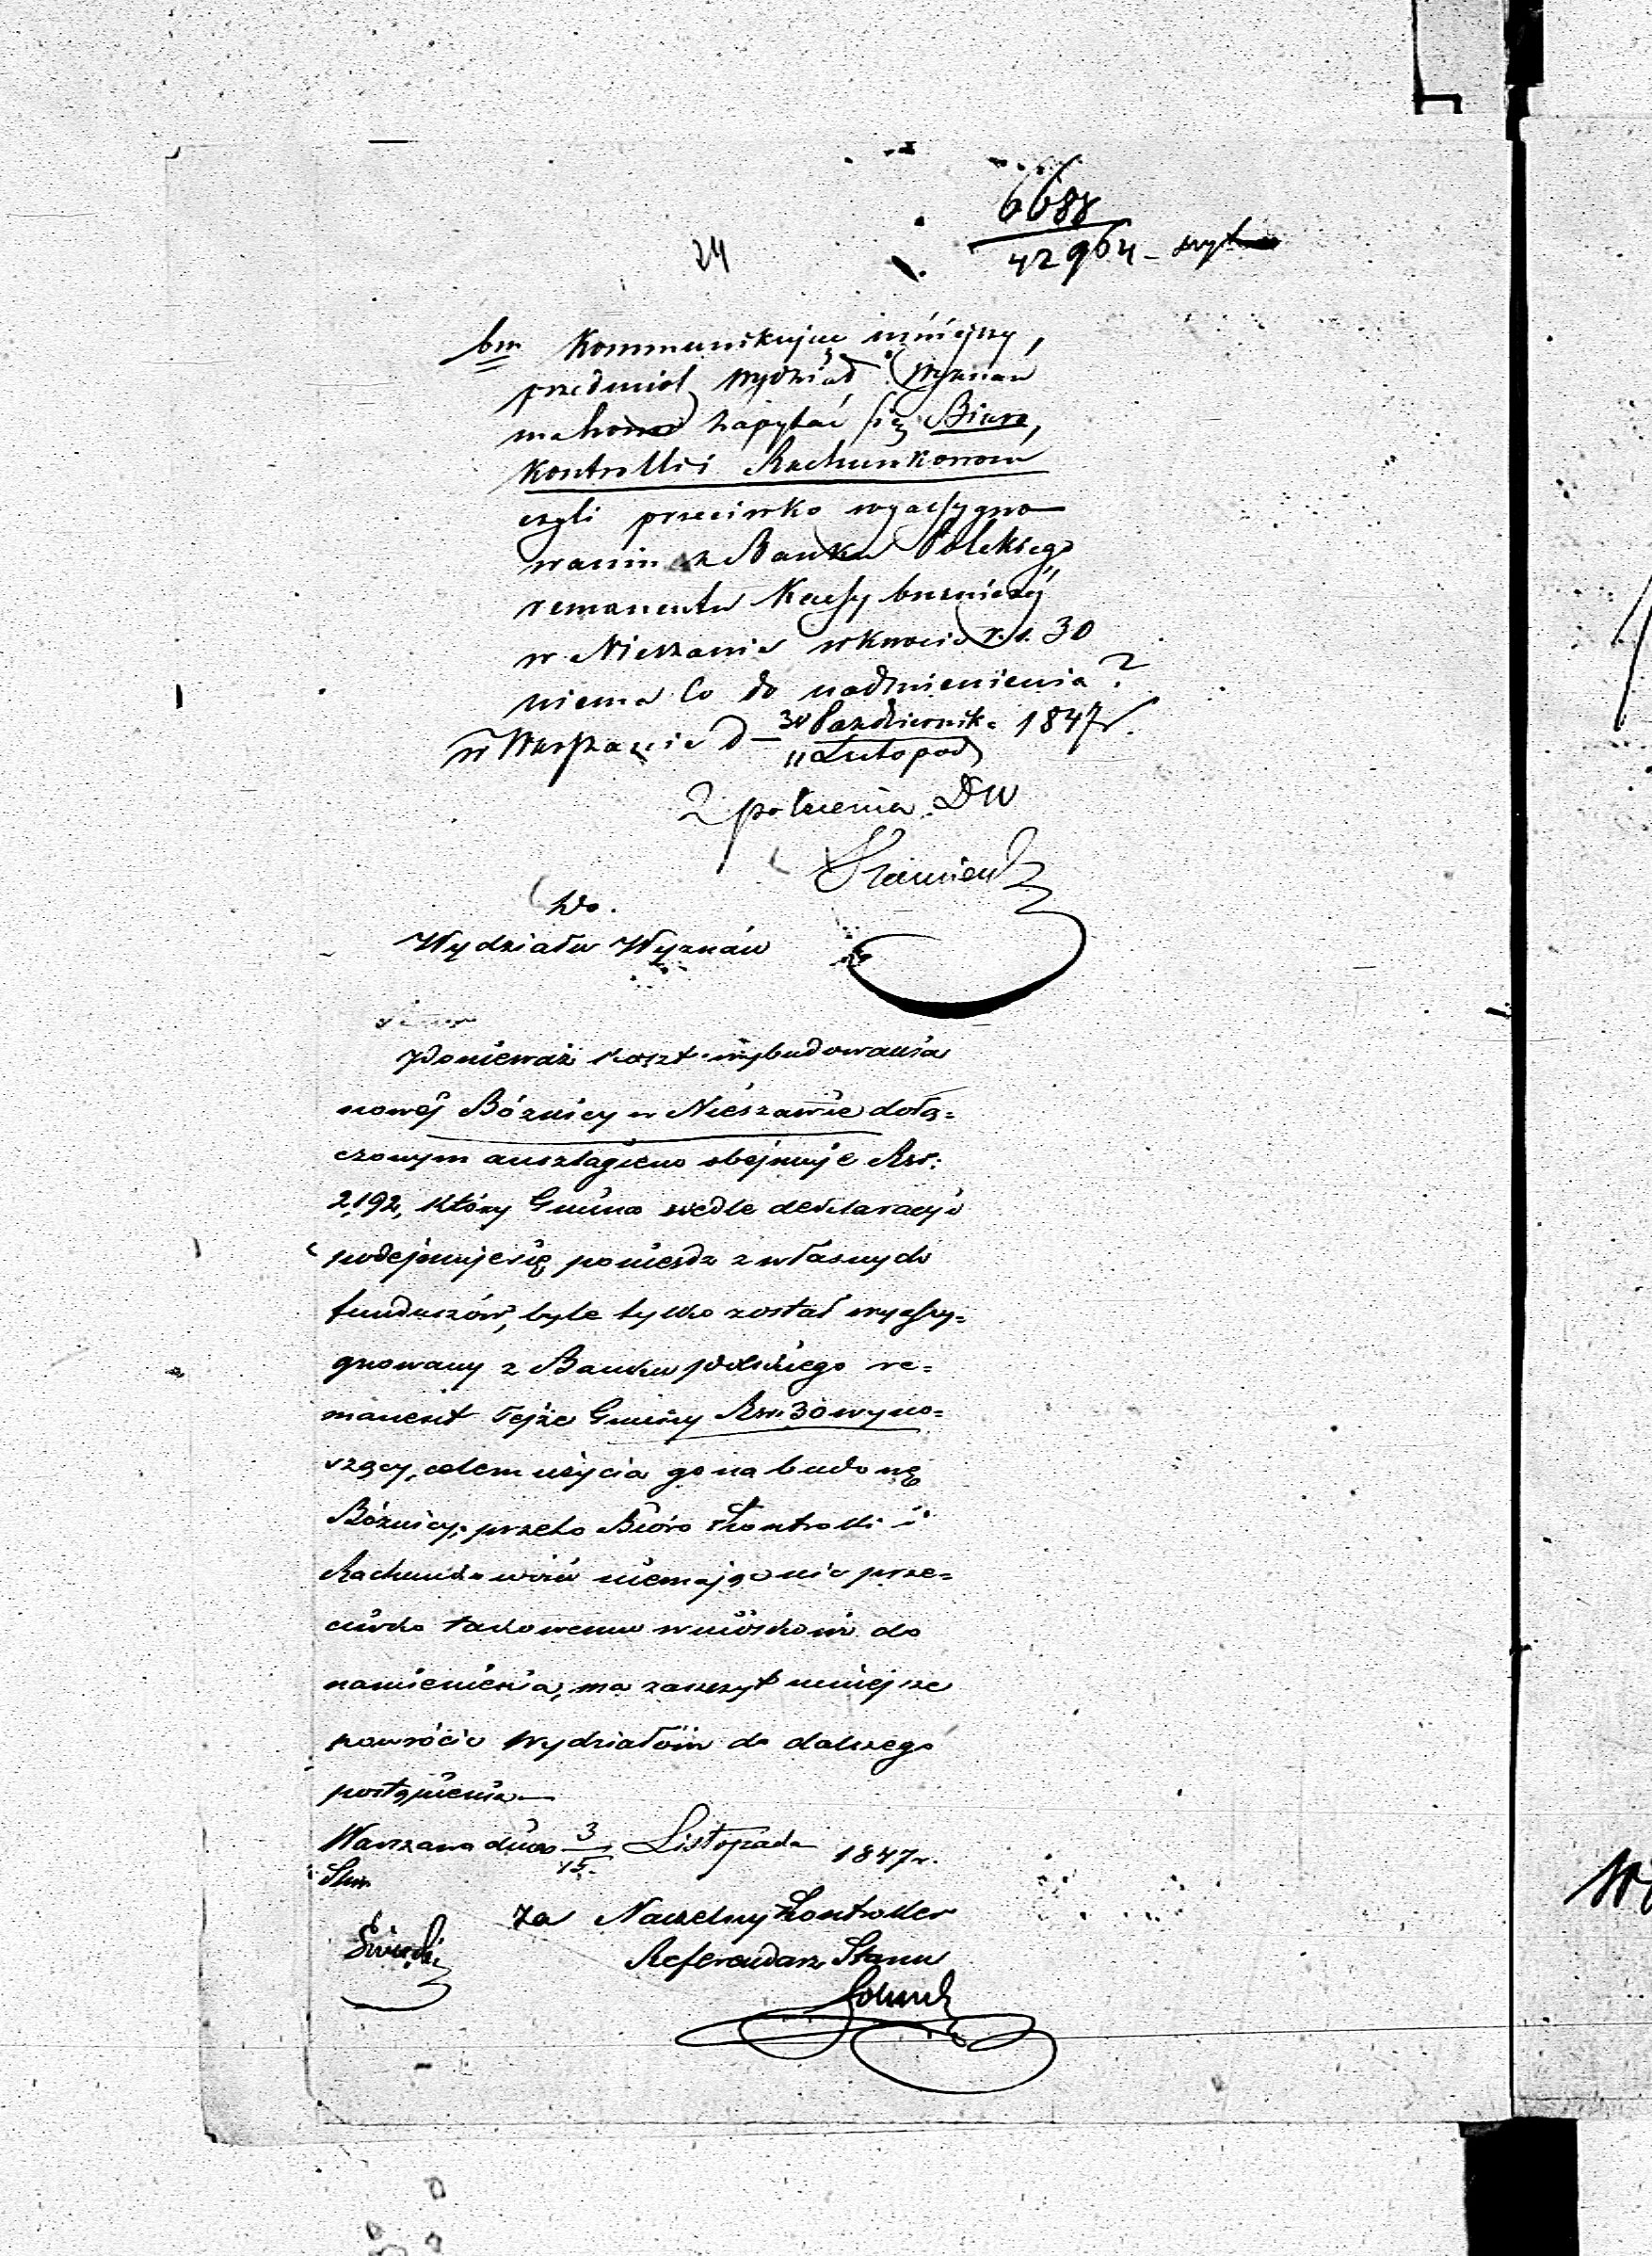 6688
24 42964
bm Kommunikując niniejszy
przedmiot Wydział Wyznań
ma honor zapytać się Biura
Kontrolli i Rachunkowow
czyli przeciwko wyassygno
waniu z Banku Polskiego
remanentu Kassy bużniczéj
w Nieszawie w kwocie r.s. 30
niema co do nadmienienia?
w Warszawie d 30 Październik. 1847 r.
11 Listopad
Z polecenia DW
do.
Wydziału Wyznań
Ponieważ koszt wybudowania
nowéj Bóżnicy w Nieszawie dołą=
czonym anszlagiem obejmuje Rsr:
2192, który Gmina wedle deklaracyi
podejmuje się ponieść z własnych
funduszów, byle tylko został wyassy=
gnowany z Banku Polskiego re=
manent tejże Gminy Rsr. 30 wyno=
szący, celem użycia go na budowę
Bóżnicy; przeto Bióro Kontrolli i
Rachunkowości niemając nic prze=
ciwko takowemu wnioskowi do
namienienia, ma zaszczyt niniejsze
powrócić Wydziałowi do dalszego
postąpienia.—
Warszawa dnia 3/15 Listopada 1847 r.
Za Naczelny Kontroller
Referendarz Stanu